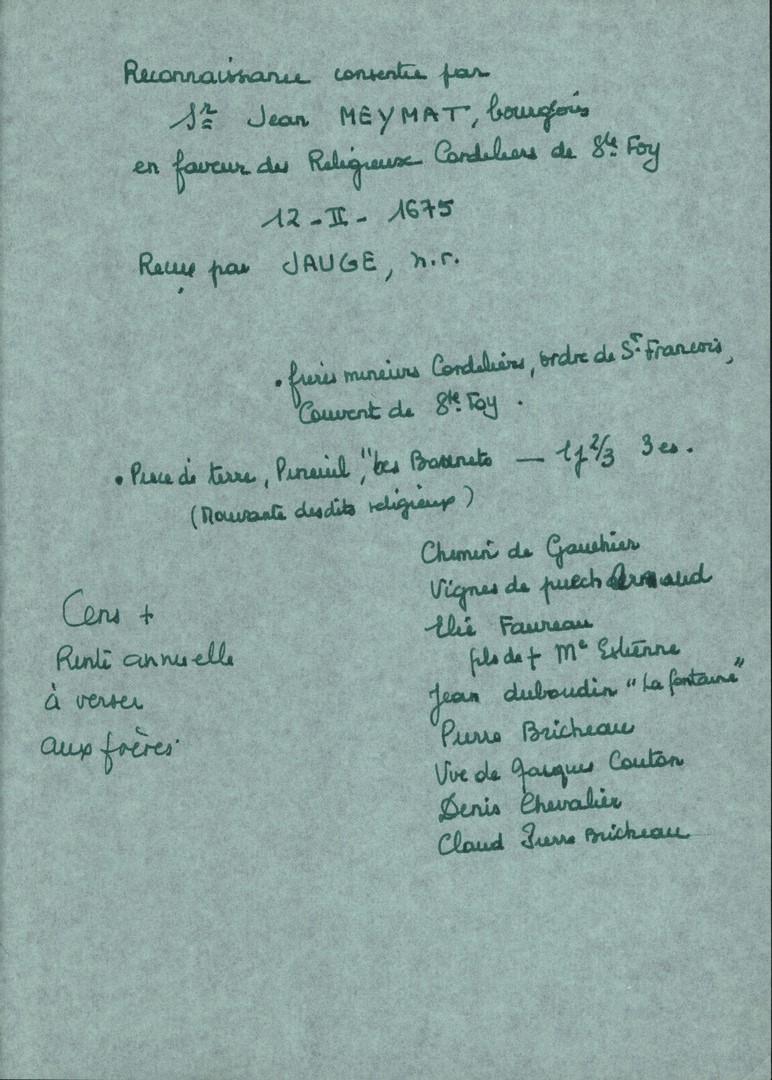 Reconnaissance consentie par
Sr Jean MEYMAT, bourgois
en faveur des Religieux Cordeliers de Ste Foy
12 - II - 1675
Reçue par JAUGE, n.r.
• frères mineurs Cordeliers, ordre de St Francois,
Couvent de Ste Foy.
• Piece de terre, Pineuil, "les — 1j 2/3 3 es.
(Mouvante desdits religieux)
Chemin de Gauthier
Vignes de puech Armaud
Elie Faureau
fils de + Me Estienne
Jean duboudin "La fontaine"
Pierre Bricheau
Vve de Jacques Couton
Denis Chevalier
Claud Pierre Bricheau
Cens +
Rente annuelle
à verser
aux frères